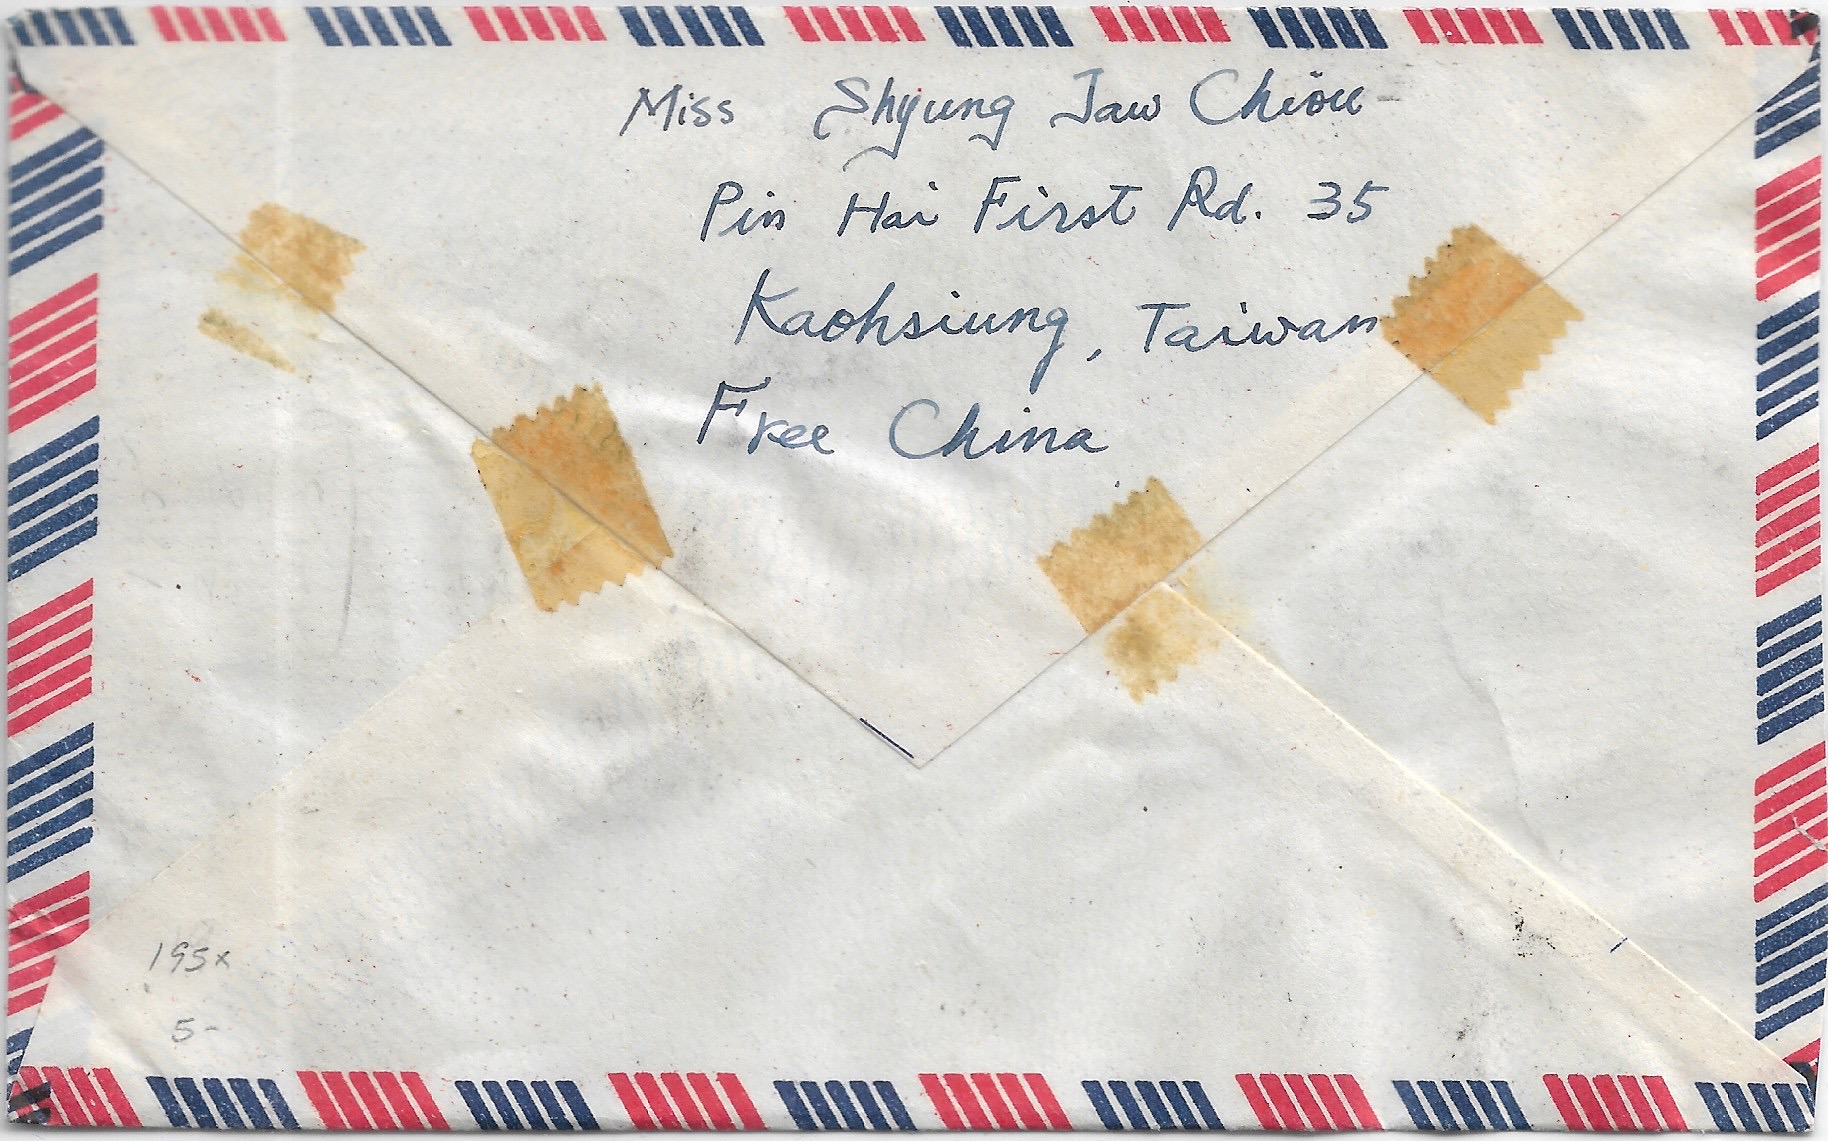 Miss Shyung Jaw Chiou
Pin Hai First Rd. 35
Kaohsiung, Taiwan
Free China
195x
5-